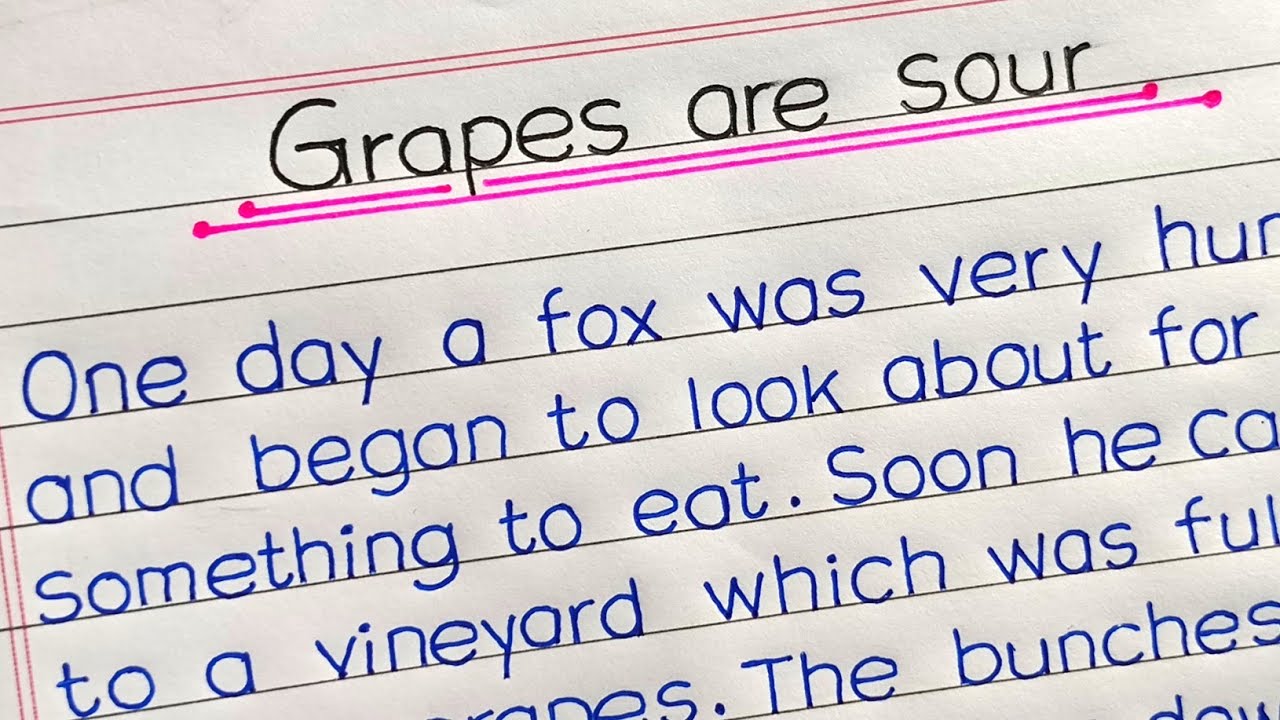 Grapes are sour
One day a fox was very
and began to look about for
something to eat. Soon he
to a vineyard which was
The bunches